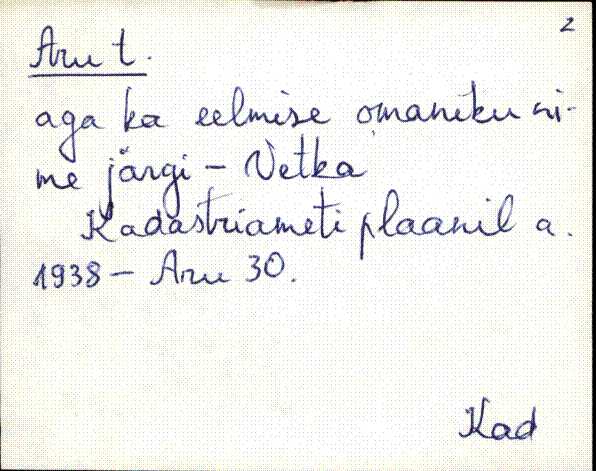 2
Aru t.
aga ka eelmise omaniku ni-
me järgi - Vetka
Kadastriameti plaanil a.
1938 - Aru 30.
Kad